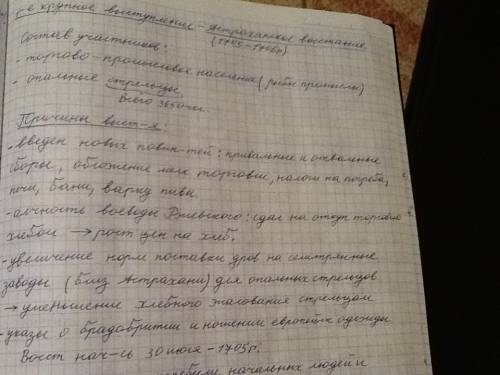 1-е крупное выступление - Астраханское восстание
(1705-1706г)
Состав участников:
- торгово-промысловое население (рыбн. промыслы)
- опальные стрельцы
Всего 3650 чел.
Причины восст-я:
- введен новых повин-тей: привальные и отвальные
сборы, обложение мелк торговли, налоги на погреба,
печи, бани, варку пива.
- алчность воеводы Ржевского: сдал на откуп торговлю
хлебом → рост цен на хлеб.
- увеличение норм поставки дров на селитрянные
заводы (близ Астрахани) для опальных стрельцов
→ уменьшение хлебного жалования стрельцам
- указы о брадобритии и ношении европейск одежды
Восст нач-сь 30 июля - 1705г.
перебили начальных людей и